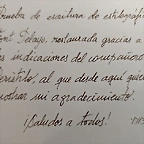 Prueba de escritura de estilográfica
Mont Pelayo, restaurada gracias a
las indicaciones del compañero
al que desde aquí quiero
mostrar mi agradecimiento.
¡Saludos a todos!